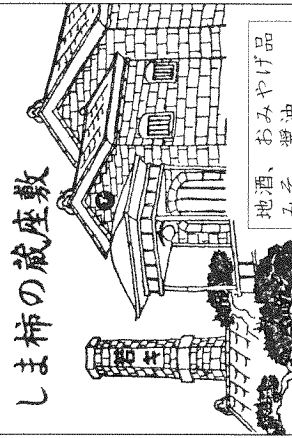 しま柿の蔵座敷
地酒、おみやげ品
みそ 醤油